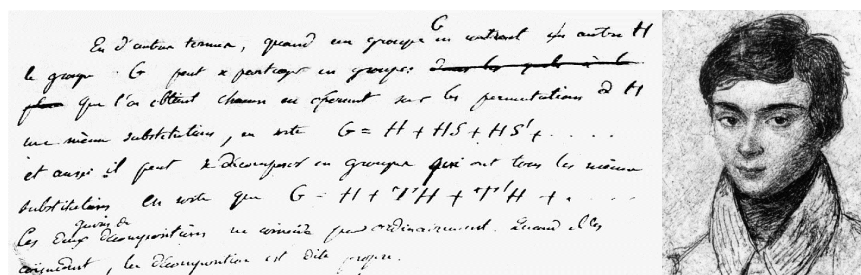 G
En d'autres termes, quand un groupe en contient un autre H
le groupe G peut se partager en groupes
que l'on obtient chacun en opérant sur les permutations de H
une même substitution, en sorte G = H + HS + HS' + . . . .
et aussi il peut se décomposer en groupes qui ont tous les mêmes
substitutions en sorte que G = H + TH + T'H + . . . .
Ces deux décompositions ne coïncident pas ordinairement. Quand elles
coïncident, la décomposition est dite propre.